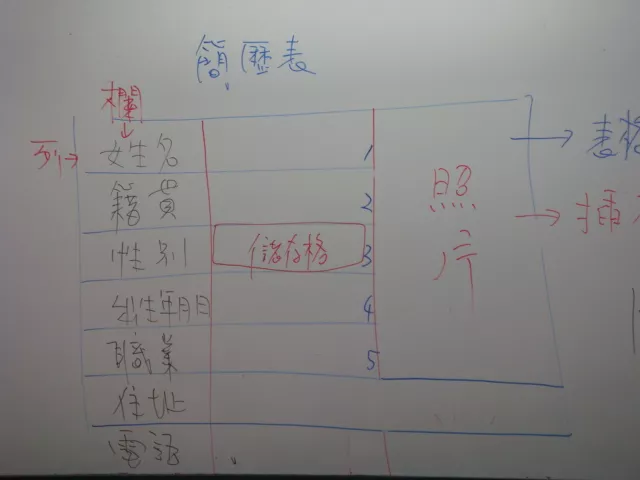 簡歷表
欄
列 姓名 1 表格
籍貫 2 照片 插
性別 儲存格 3
出生年月日 4
職業 5
住址
電話